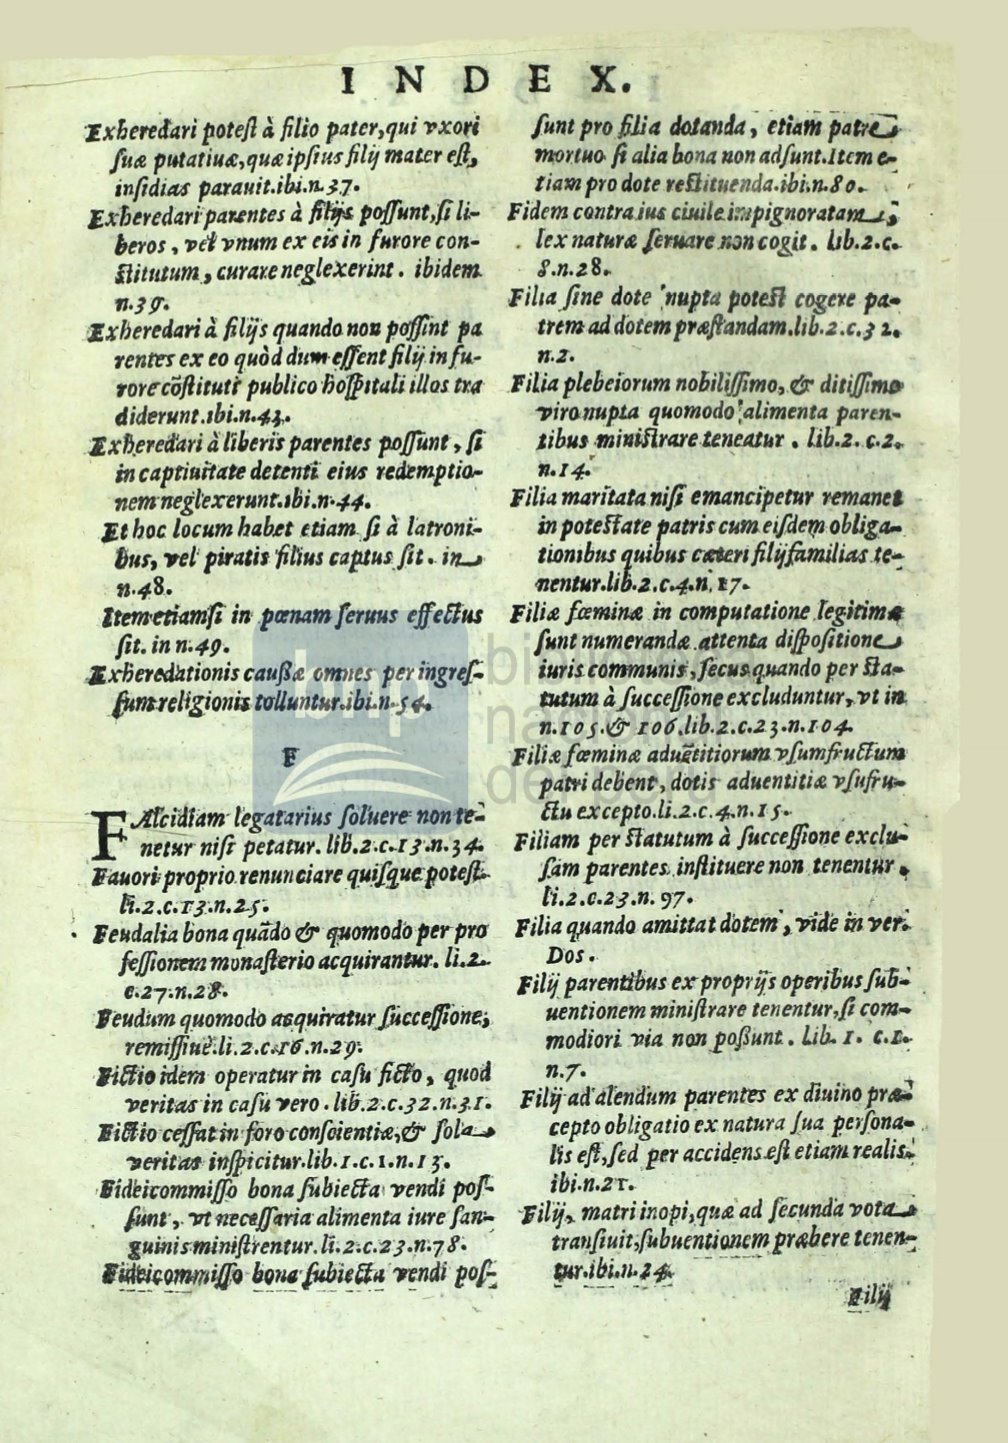 INDEX.
Exheredari potest à filio pater,qui vxori
suæ putatiuæ,quæ ipsius filij mater est,
insidias parauit.ibi.n.37.
Exheredari parentes à filijs possunt,si li-
beros, vel vnum ex eis in furore con-
stitutum, curare neglexerint. ibidem
n.39.
Exheredari à filijs quando non possint pa
rentes ex eo quòd dum essent filij in fu-
rore cõstituti publico hospitali illos tra
diderunt.ibi.n.43.
Exheredari à liberis parentes possunt, si
in captiuitate detenti eius redemptio-
nem neglexerunt.ibi.n.44.
Et hoc locum habet etiam si à latroni-
bus, vel piratis filius captus sit. in
n.48.
Item etiamsi in pœnam seruus effectus
sit. in n.49.
Exheredationis caussæ omnes per ingres-
sum religionis tolluntur.ibi.n.54.
F
FAlcidiam legatarius soluere non te-
netur nisi petatur. lib.2.c.13.n.34.
Fauori proprio renunciare quisque potest.
li.2.c.13.n.25.
Feudalia bona quãdo & quomodo per pro
fessionem monasterio acquirantur. li.2.
c.27.n.28.
Feudum quomodo acquiratur successione,
remissiuè.li.2.c.16.n.29.
Fictio idem operatur in casu ficto, quod
veritas in casu vero. lib.2.c.32.n.31.
Fictio cessat in foro conscientiæ,& sola
veritas inspicitur.lib.1.c.1.n.13.
Fideicommisso bona subiecta vendi pos-
sunt, vt necessaria alimenta iure san-
guinis ministrentur.li.2.c.23.n.78.
Fideicommisso bona subiecta vendi pos-
sunt pro filia dotanda, etiam patre
mortuo si alia bona non adsunt.Item e-
tiam pro dote restituenda.ibi.n.80.
Fidem contra ius ciuile impignoratam,
lex naturæ seruare non cogit. lib.2.c.
8.n.28.
Filia sine dote nupta potest cogere pa-
trem ad dotem præstandam.lib.2.c.32.
n.2.
Filia plebeiorum nobilissimo, & ditissimo
viro nupta quomodo alimenta paren-
tibus ministrare teneatur. lib.2.c.2.
n.14.
Filia maritata nisi emancipetur remanet
in potestate patris cum eisdem obliga-
tionibus quibus cæteri filijfamilias te-
nentur.lib.2.c.4.n.17.
Filiæ fœminæ in computatione legitimæ
sunt numerandæ attenta dispositione
iuris communis, secus quando per sta-
tutum à successione excluduntur, vt in
n.105.& 106.lib.2.c.23.n.104.
Filiæ fœminæ aduẽtitiorum vsumfructum
patri debent, dotis aduentitiæ vsufru-
ctu excepto.li.2.c.4.n.15.
Filiam per statutum à successione exclu-
sam parentes instituere non tenentur.
li.2.c.23.n.97.
Filia quando amittat dotem, vide in ver.
Dos.
Filij parentibus ex proprijs operibus sub-
uentionem ministrare tenentur,si com-
modiori via non possunt. Lib. 1. c.1.
n.7.
Filij ad alendum parentes ex diuino præ-
cepto obligatio ex natura sua persona-
lis est,sed per accidens est etiam realis.
ibi.n.21.
Filij, matri inopi,quæ ad secunda vota
transiuit,subuentionem præbere tenen-
tur.ibi.n.24.
Filij